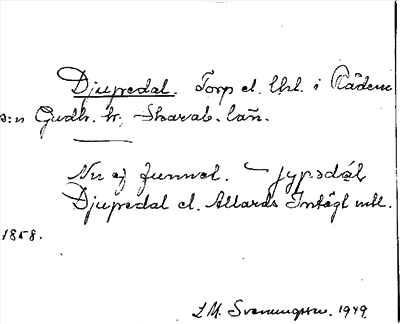 Djupedal. Torp el. lht. i Rådene
s:n Gudh. hr, Skarab. län.
Nu ej funnet. – jypədal
Djupedal el. Allards Intägt utk.
1858.
L.M. Svenungsson. 1949.